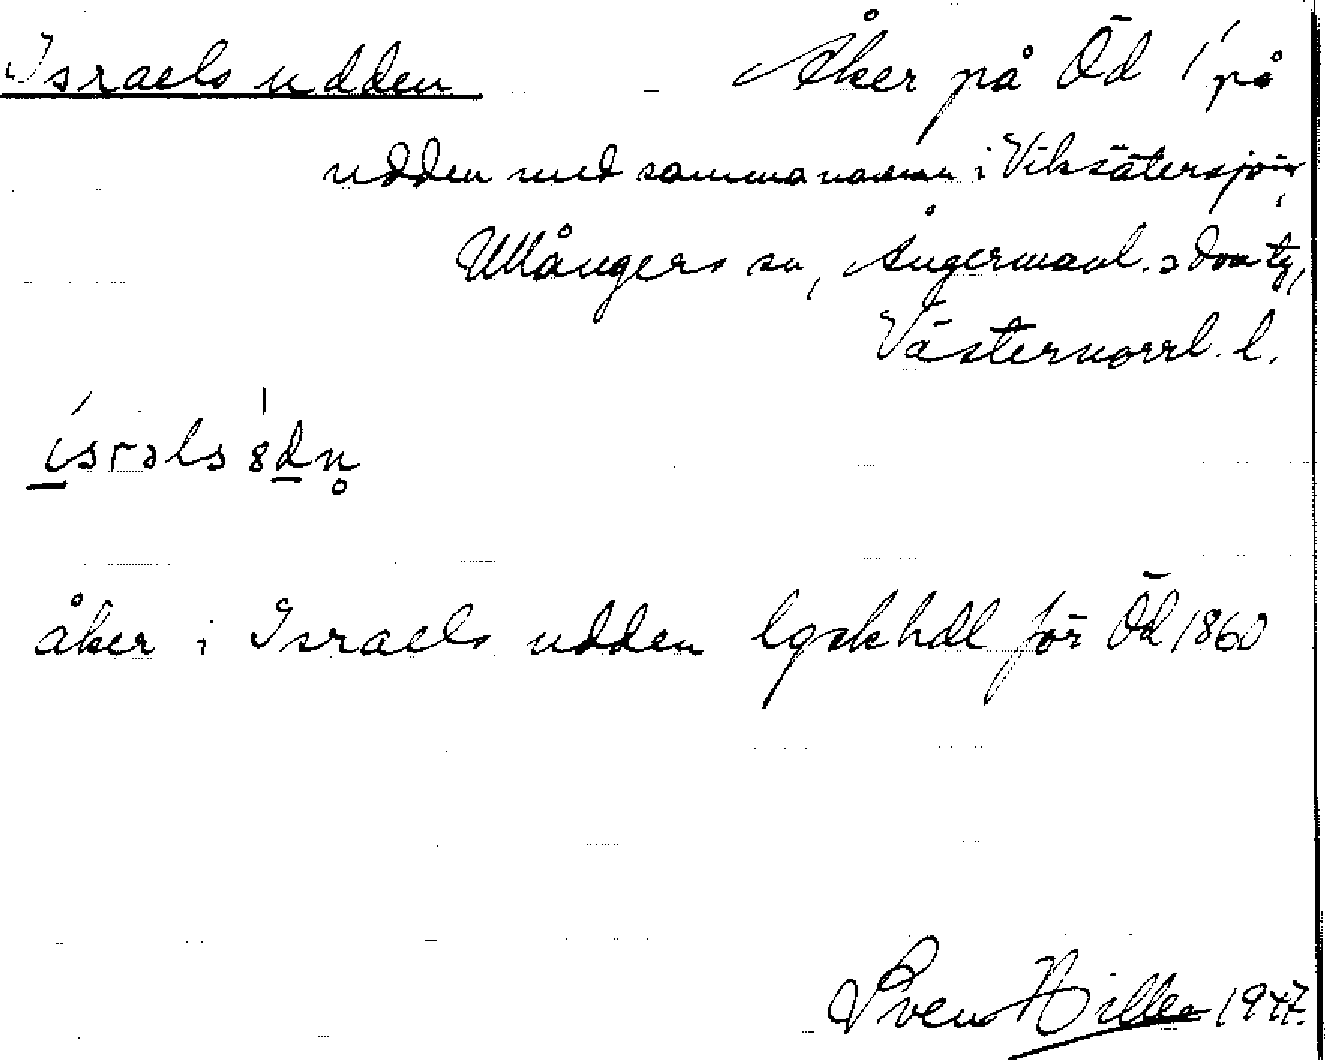 Israels udden Åker på Öd 1 på
udden med samma namn i Viksätersjön,
Ullångers sn, Ångermanl. s domsg,
Västernorrl. l.
ísrəls 8dn̥
åker i Israels udden lgskhdl för Öd 1860
Sven Hiller 1947.